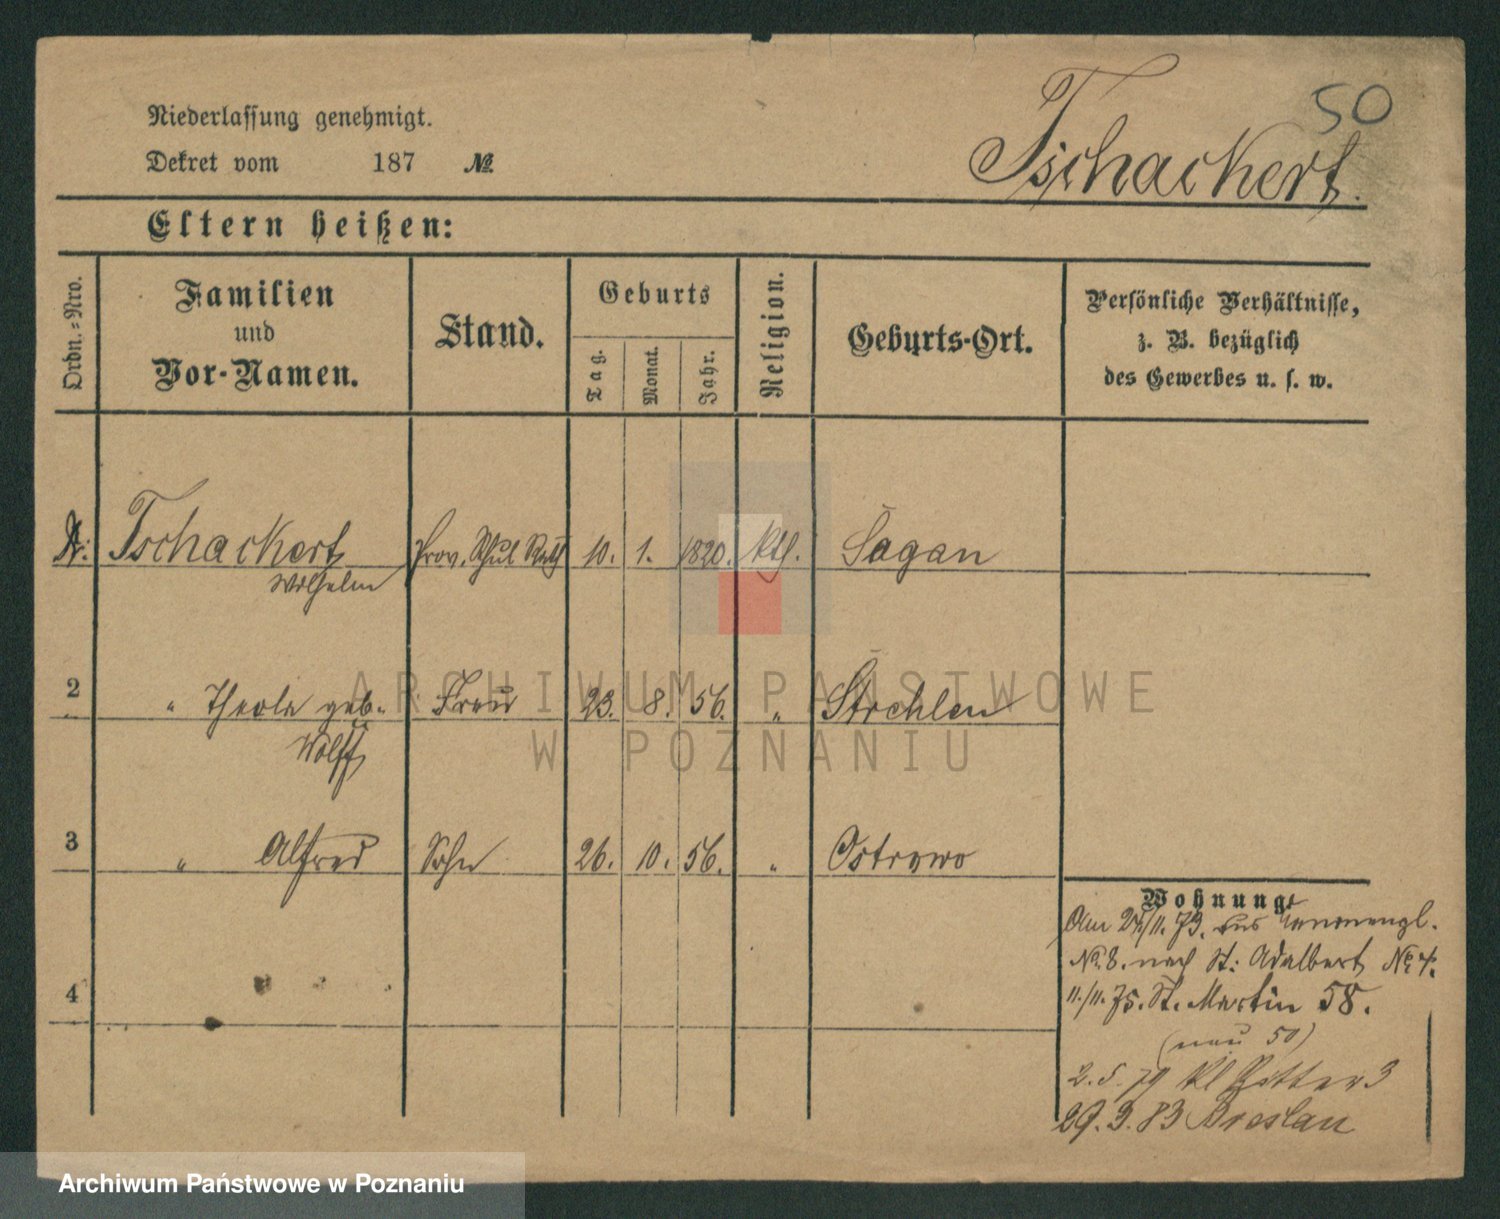 50
Niederlassung genehmigt.
Dekret vom 187 №
Tschackert.
Eltern heißen:
Ordn.=Nro.
Familien
und
Vor-Namen.
Stand.
Geburts
Tag.
Monat.
Jahr.
Religion.
Geburts-Ort.
Persönliche Verhältnisse,
z. B. bezüglich
des Gewerbes u. s. w.
Tschackert Prov. Schul Rath 10. 1. 1820. kth. Sagan
Wilhelm
2 " geb. Frau 23. 8. 56. " Strehlen
Wolff
3 " Alfred Sohn 26. 10. 56. " Ostrowo
4
Wohnung
Am 24/11. 73. aus
No. 8. nach St. Adalbert No 4.
11./11. 75. St. Martin 58.
(neu 50)
2. 5. 79 Kl Ritter 3
29. 3. 83 Breslau
ARCHIWUM PAŃSTWOWE
W POZNANIU
Archiwum Państwowe w Poznaniu